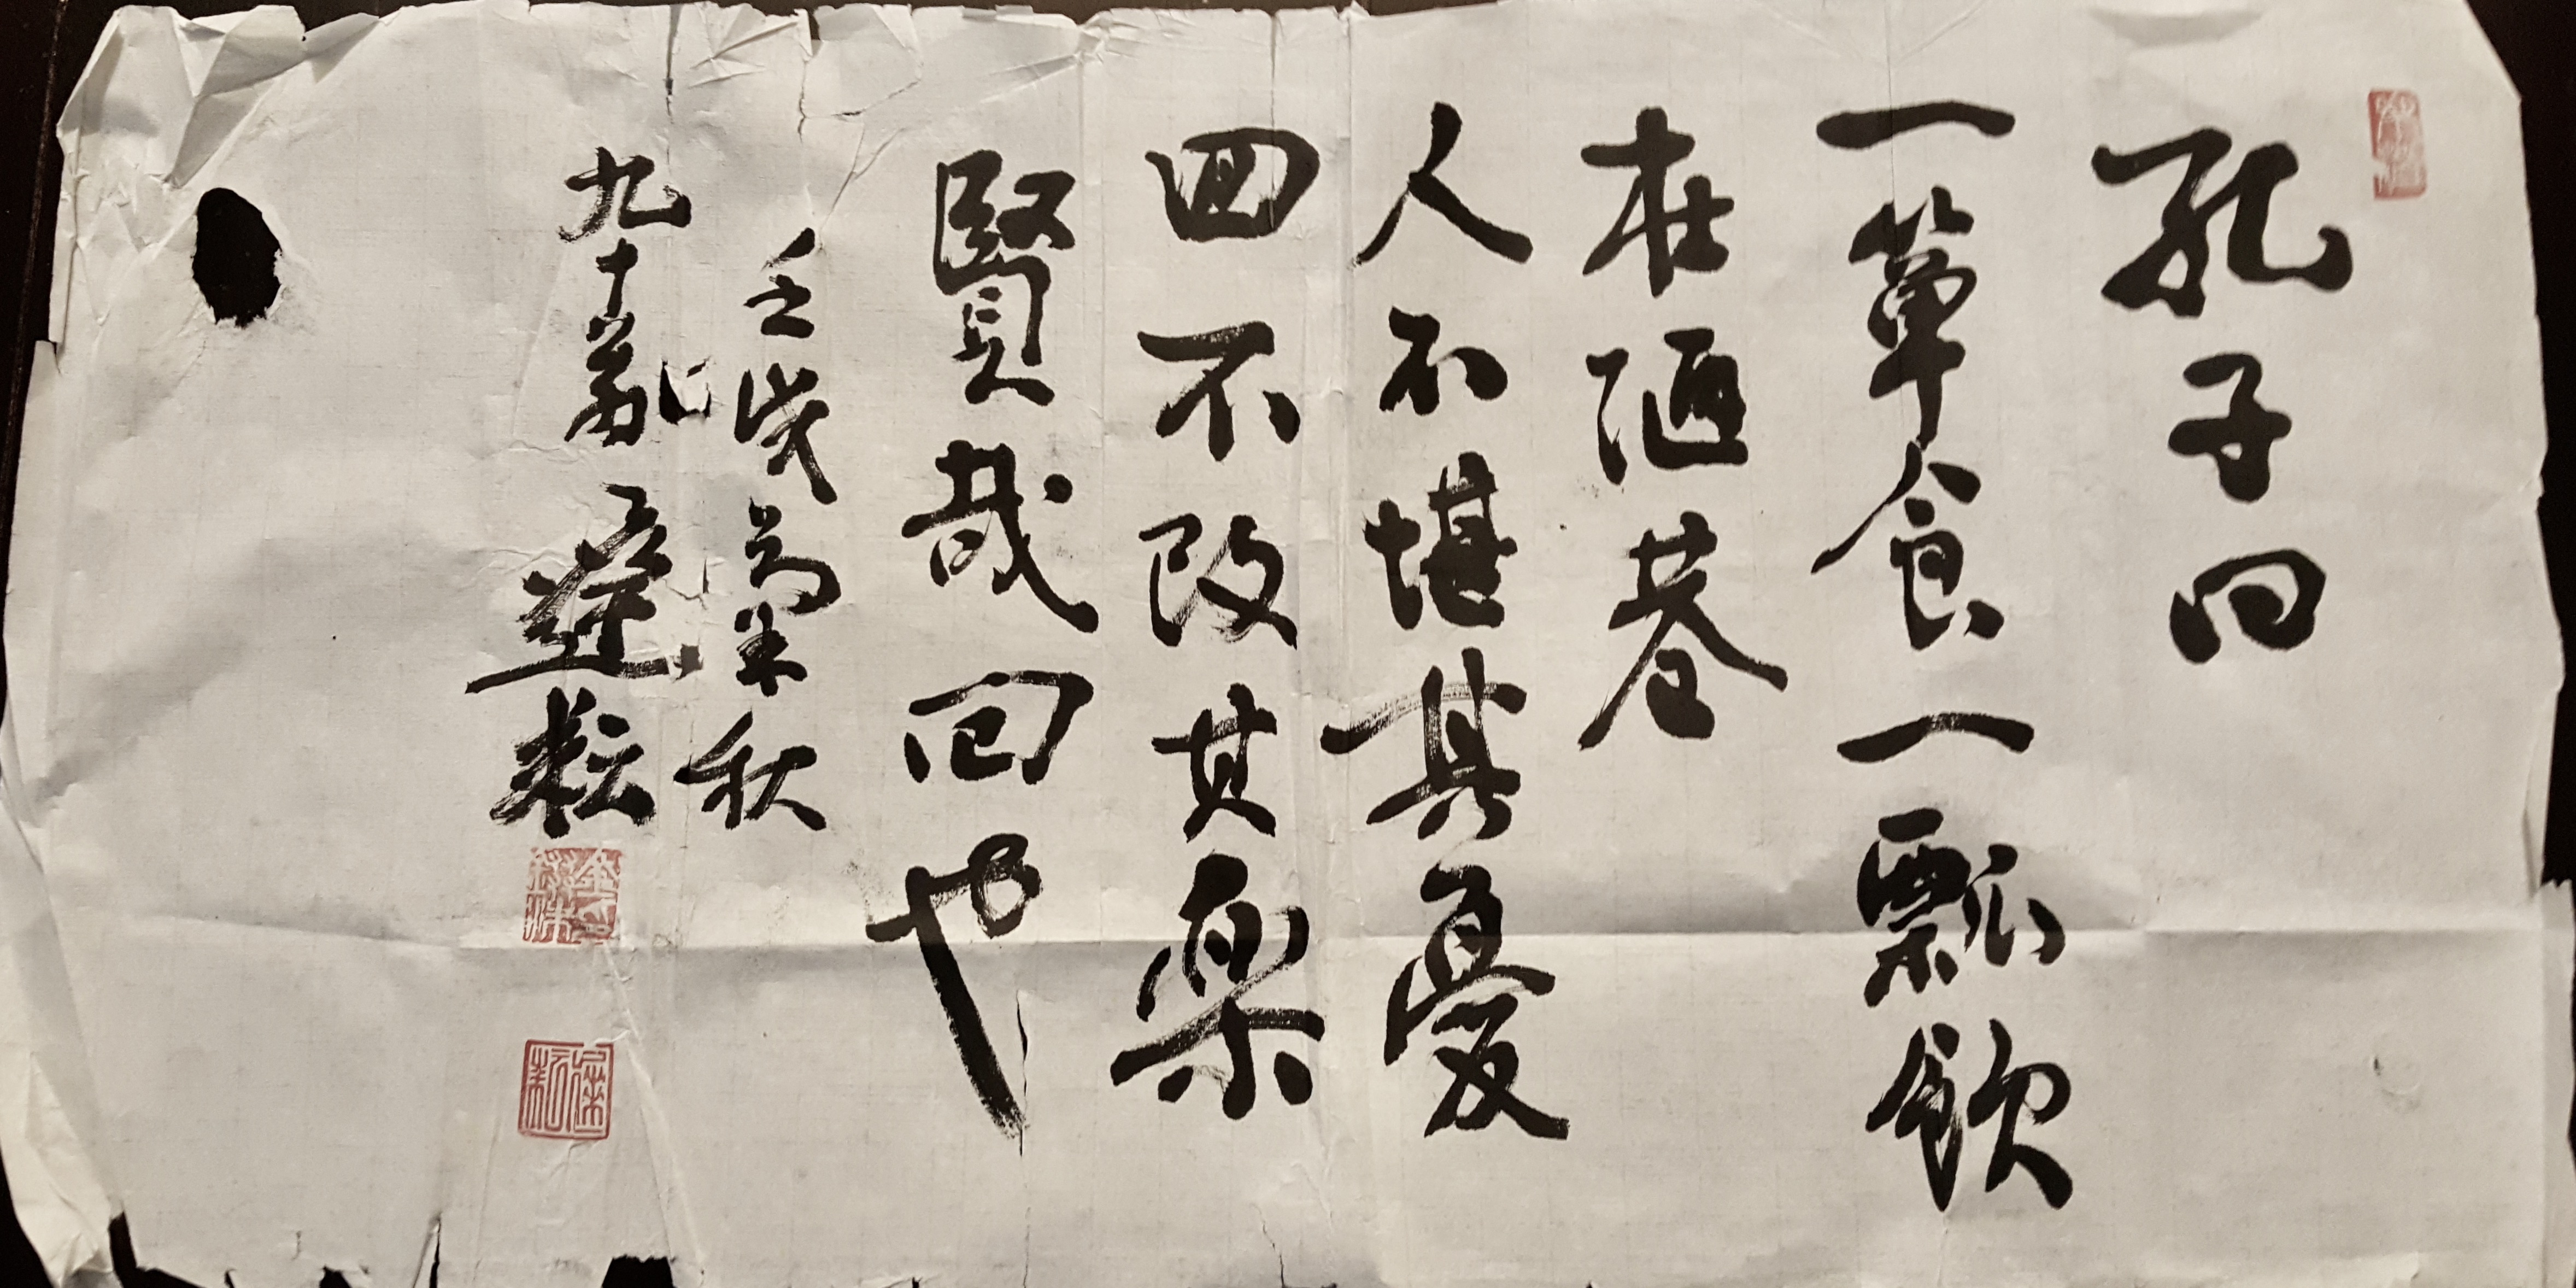 孔子曰
一簞食一瓢飲
在陋巷
人不堪其憂
回不改其樂
賢哉回也
壬戌菊秋
九十
耘